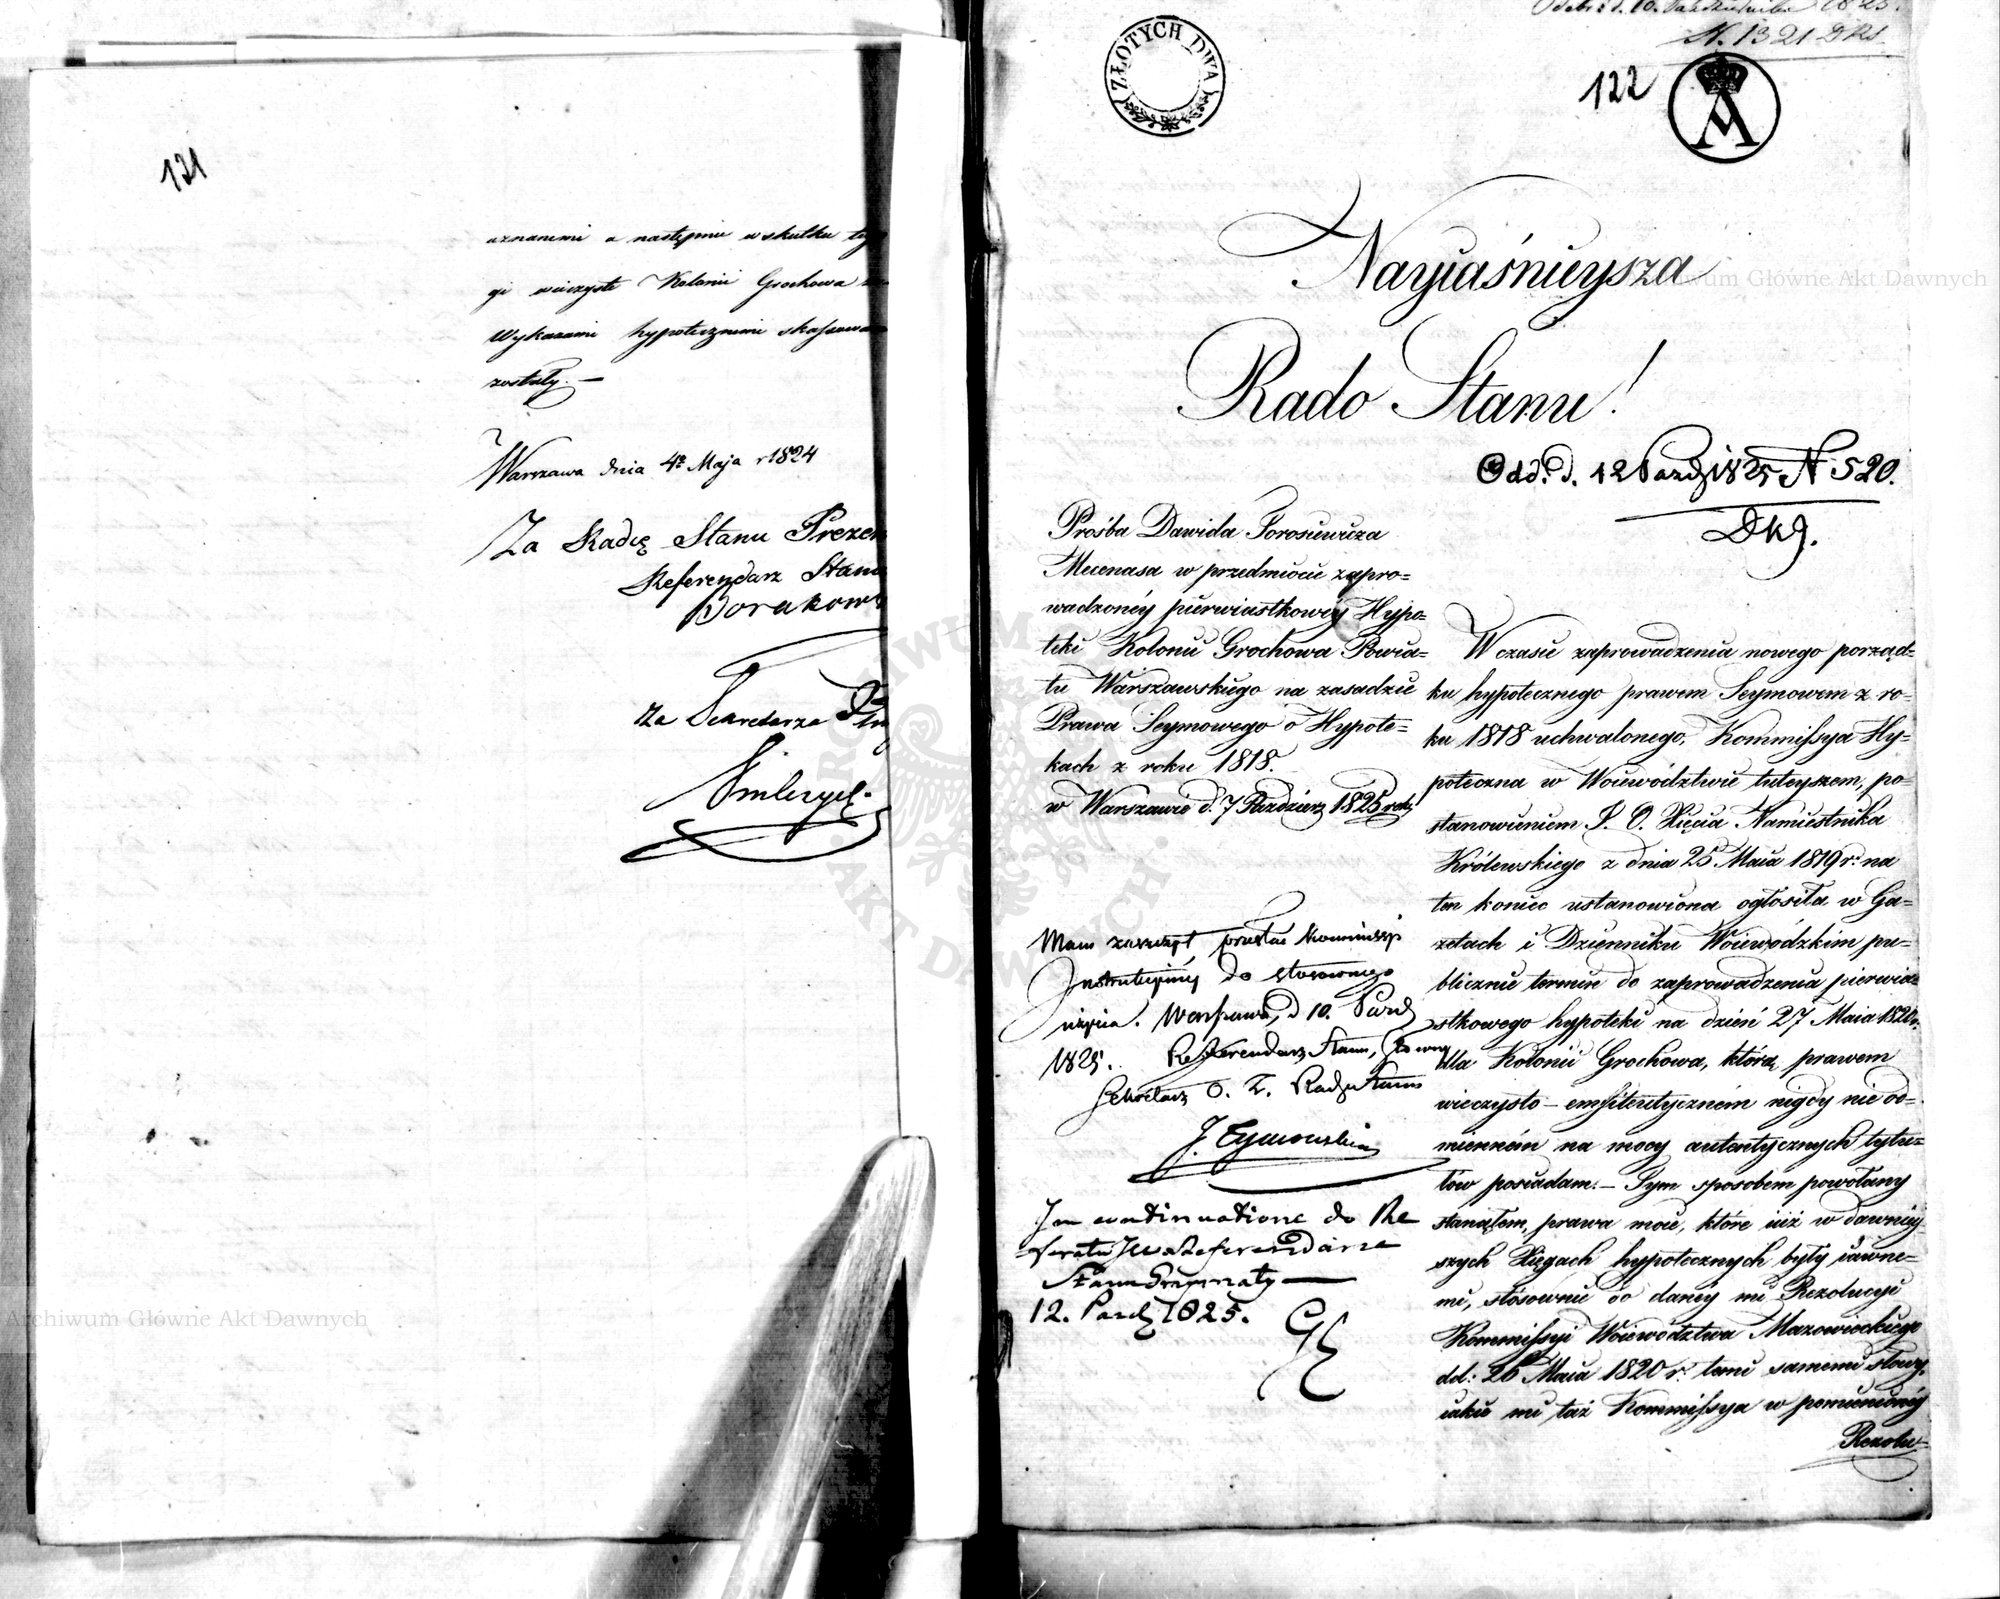 121
uznanemi a następnie w skutku tey
gi wieczyste Kolonii Grochowa
Wykazami hypotecznemi skassowane
zostały. —
Warszawa dnia 4º Maja r 1824
Za Radcę Stanu Prezen
Referendarz Stanu
za Sekretarza
Odebr: d. 10. Października 1825.
N. 1321 DRS
ZŁOTYCH DWA
122
A
Nayiaśnieysza
Rado Stanu!
Odd. d. 12 Paźdz 1825 N. 520.
Prośba Dawida Torosiewicza
Mecenasa w przedmiocie zapro=
wadzonéy pierwiastkowéy Hypo=
teki Kolonii Grochowa Powia=
tu Warszawskiego na zasadzie
Prawa Seymowego o Hypote=
kach z roku 1818.
w Warszawie d. 7 Paździer 1825 roku
Mam zaszczyt przesłać Kommissyi
Instrukcyiney do stosownego
użycia. Warszawa, d 10. Paźd
1825. Referendarz Stanu, Główny
Sekretarz O. Z. Rady Stanu
In continuatione do Re
feratu JW Referendarza
Stanu
12. Paźdz 1825.
W czasie zaprowadzenia nowego porząd=
ku hypotecznego prawem Seymowem z ro=
ku 1818 uchwalonego, Kommissya Hy=
poteczna w Woiewództwie tuteyszem, po=
stanowieniem J. O. Xięcia Namiestnika
Królewskiego z dnia 25 Maia 1819 r. na
ten koniec ustanowiona ogłosiła w Ga=
zetach i Dzienniku Woiewódzkim pu=
blicznie termin do zaprowadzenia pierwia=
stkowego hypoteki na dzień 27 Maia 1820 r.
dla Kolonii Grochowa, którą prawem
wieczysto – emfiteutyczném nigdy nie od=
mienném na mocy autentycznych tytu=
łów posiadam. – Tym sposobem powołany
stanąłem, prawa moie, które iuż w dawniey
szych Xięgach hypotecznych były iawne=
mi, stósownie do daney mi Rezolucyi
Kommissyi Woiewództwa Mazowieckiego
dd: 26 Maia 1820 r. temi samemi słowy,
iakie mi taż Kommissya w pomienionéy
Rezolu=
Archiwum Główne Akt Dawnych
Archiwum Główne Akt Dawnych
ARCHIWUM GŁÓWNE AKT DAWNYCH